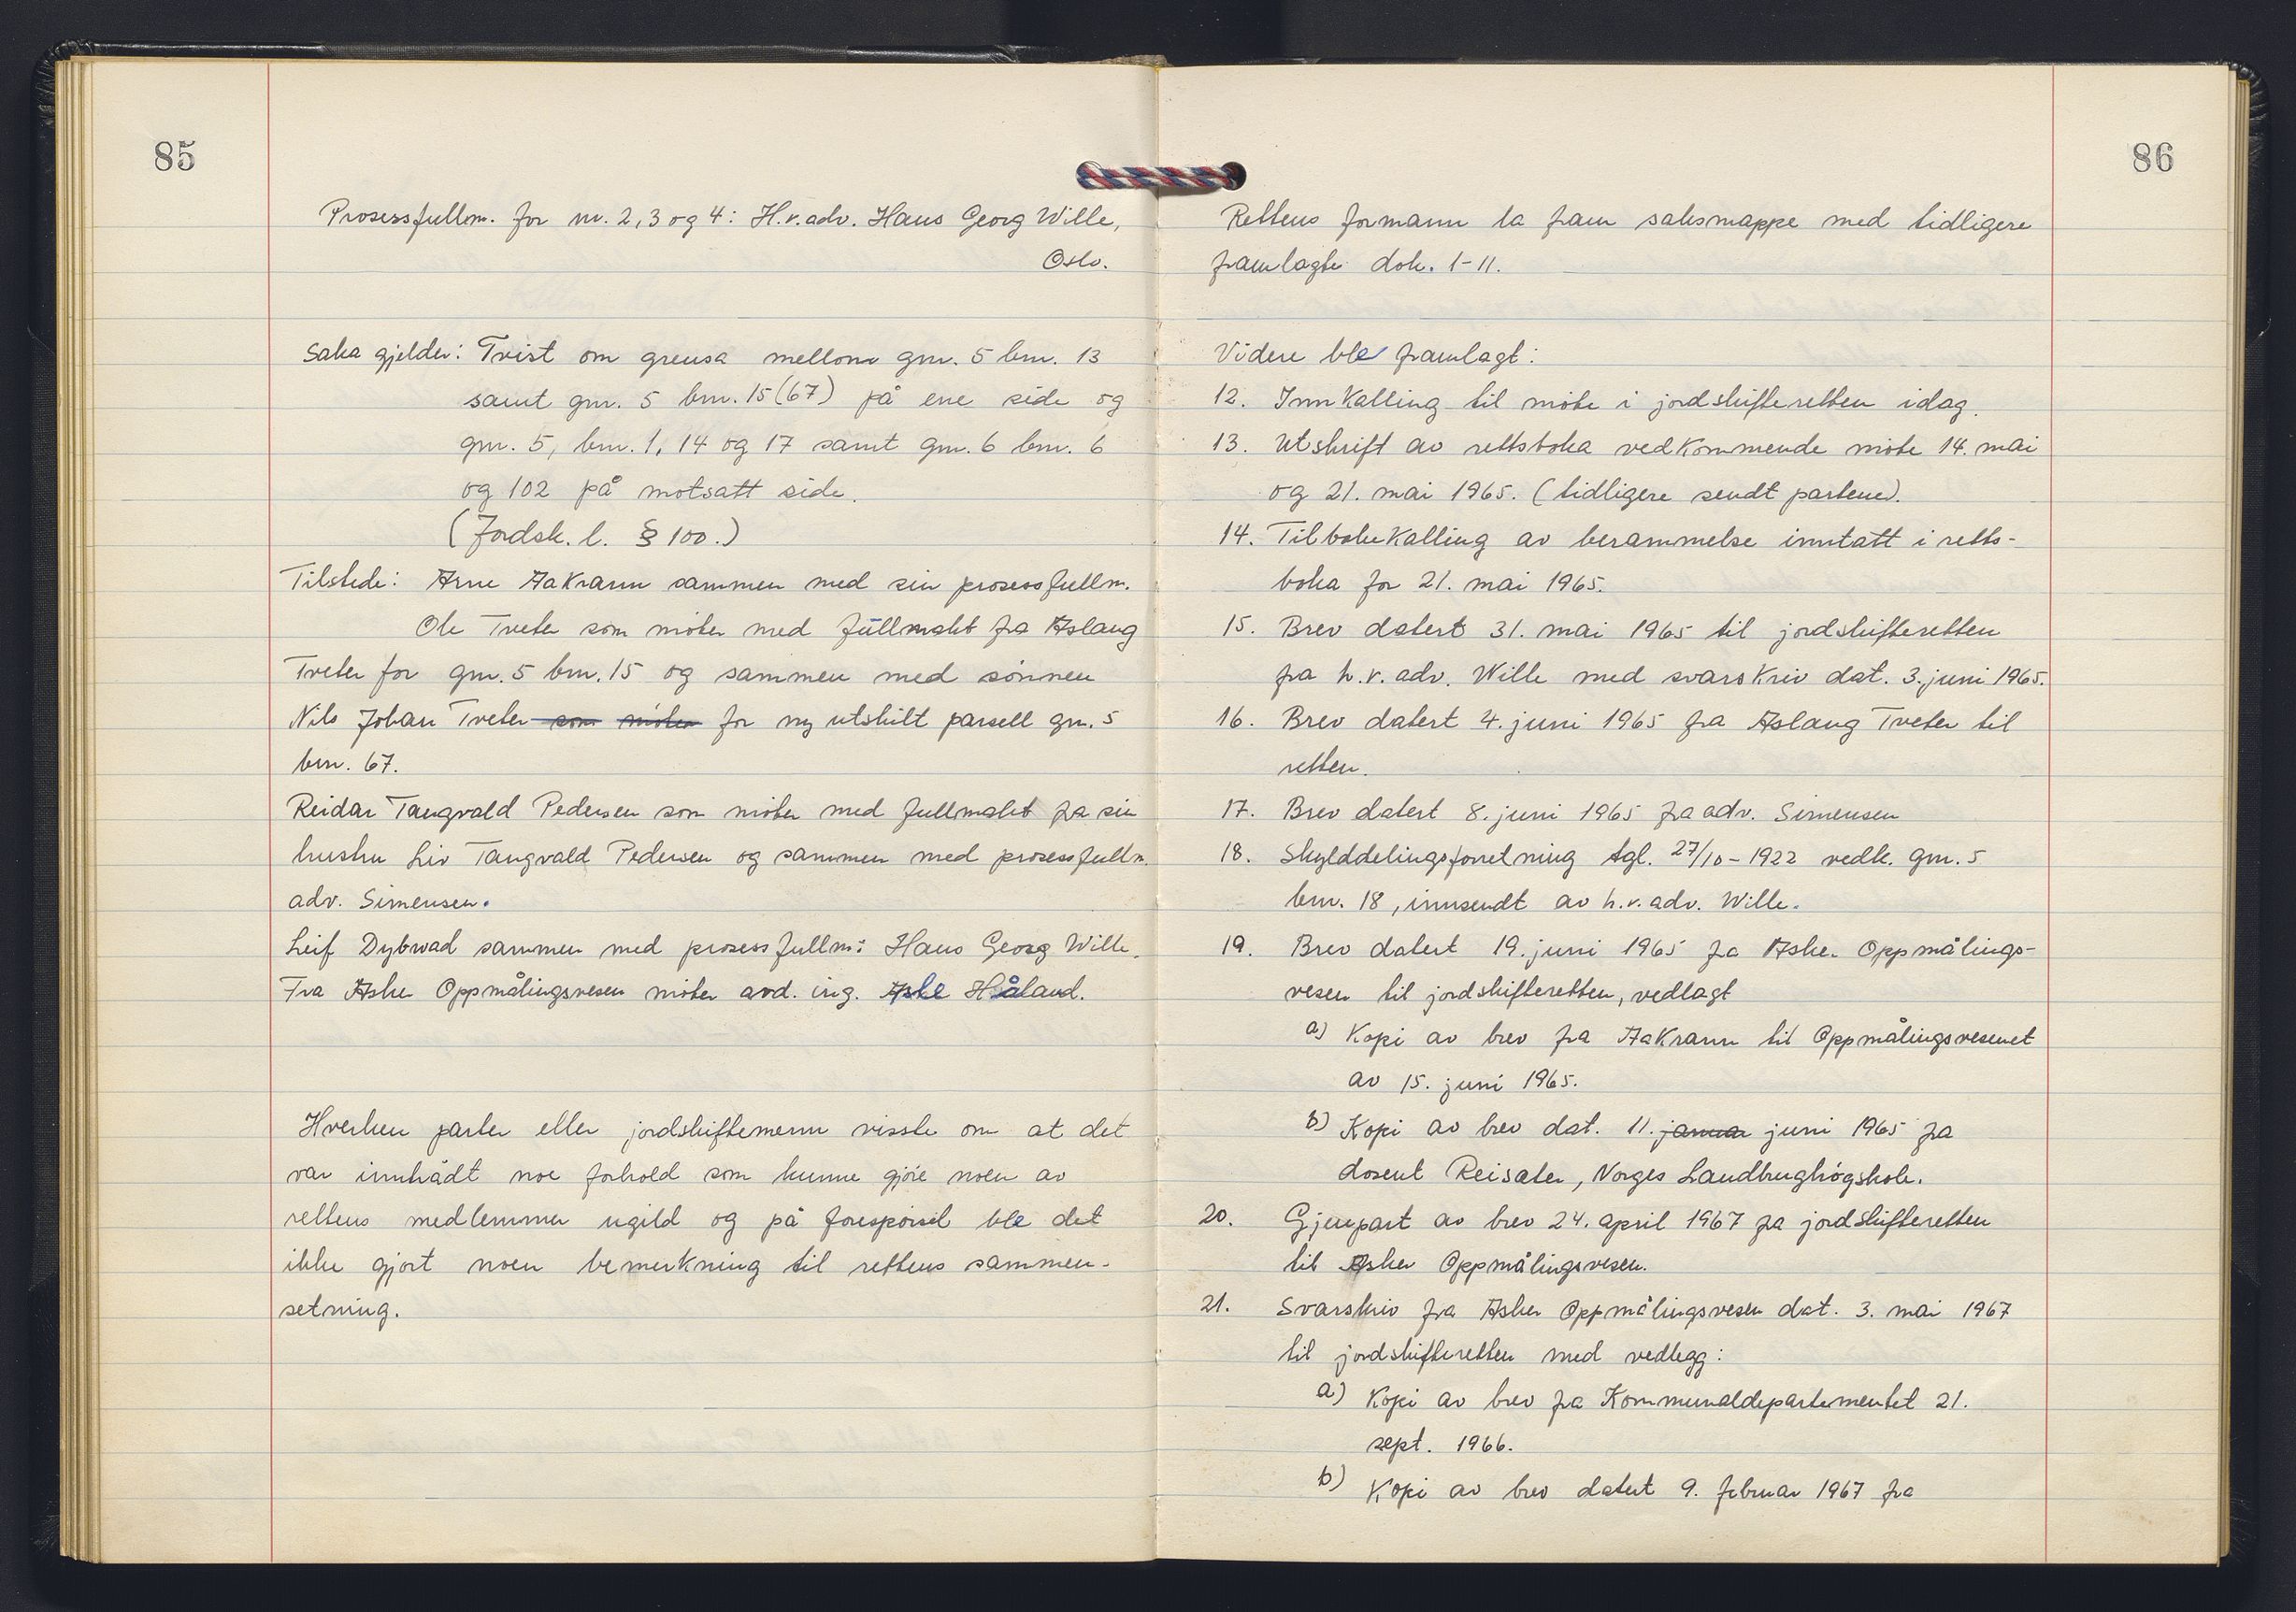 85
Prosessfullm. for nr. 2, 3 og 4: H.r.adv. Hans Georg Wille,
Oslo.
Saka gjelder: Tvist om grensa mellom gnr. 5 bnr. 13
samt gnr. 5 bnr. 15 (67) på ene side og
gnr. 5, bnr. 1, 14 og 17 samt gnr. 6 bnr. 6
og 102 på motsatt side.
(Jordsk. l. § 100.)
Tilstede: Arne Aakrann sammen med sin prosessfullm.
Ole Tveter som møter med fullmakt fra Aslaug
Tveter for gnr. 5 bnr. 15 og sammen med sønnen
Nils Johan Tveter som møter for ny utskilt parsell gnr. 5
bnr. 67.
Reidar Tangvald Pedersen som møter med fullmakt fra sin
hustru Liv Tangvald Pedersen og sammen med prosessfullm.
adv. Simensen.
Leif Dybwad sammen med prosessfullm: Hans Georg Wille.
Fra Asker Oppmålingsvesen møter avd. ing. Håland.
Hverken parter eller jordskiftemenn visste om at det
var inntrådt noe forhold som kunne gjøre noen av
rettens medlemmer ugild og på forespørsel ble det
ikke gjort noen bemerkning til rettens sammen-
setning.
86
Rettens formann la fram saksmappe med tidligere
framlagte dok. 1-11.
Videre ble framlagt:
12. Innkalling til møte i jordskifteretten idag.
13. Utskrift av rettsboka vedkommende møte 14. mai
og 21. mai 1965. (tidligere sendt partene).
14. Tilbakekalling av berammelse inntatt i retts-
boka for 21. mai 1965.
15. Brev datert 31. mai 1965 til jordskifteretten
fra h.r. adv. Wille med svarskriv dat. 3. juni 1965.
16. Brev datert 4. juni 1965 fra Aslaug Tveter til
retten.
17. Brev datert 8. juni 1965 fra adv. Simensen
18. Skylddelingsforretning tgl. 27/10-1922 vedk. gnr. 5
bnr. 18, innsendt av h.r. adv. Wille.
19. Brev datert 19. juni 1965 fra Asker Oppmålings-
vesen til jordskifteretten, vedlagt
a) Kopi av brev fra Aakrann til Oppmålingsvesenet
av 15. juni 1965.
b) Kopi av brev dat. 11. januar juni 1965 fra
dosent Reisæter, Norges Landbrughøgskole.
20. Gjenpart av brev 24. april 1967 fra jordskifteretten
til Asker Oppmålingsvesen.
21. Svarskriv fra Asker Oppmålingsvesen dat. 3. mai 1967
til jordskifteretten med vedlegg:
a) Kopi av brev fra Kommunaldepartementet 21.
sept. 1966.
b) Kopi av brev datert 9. februar 1967 fra